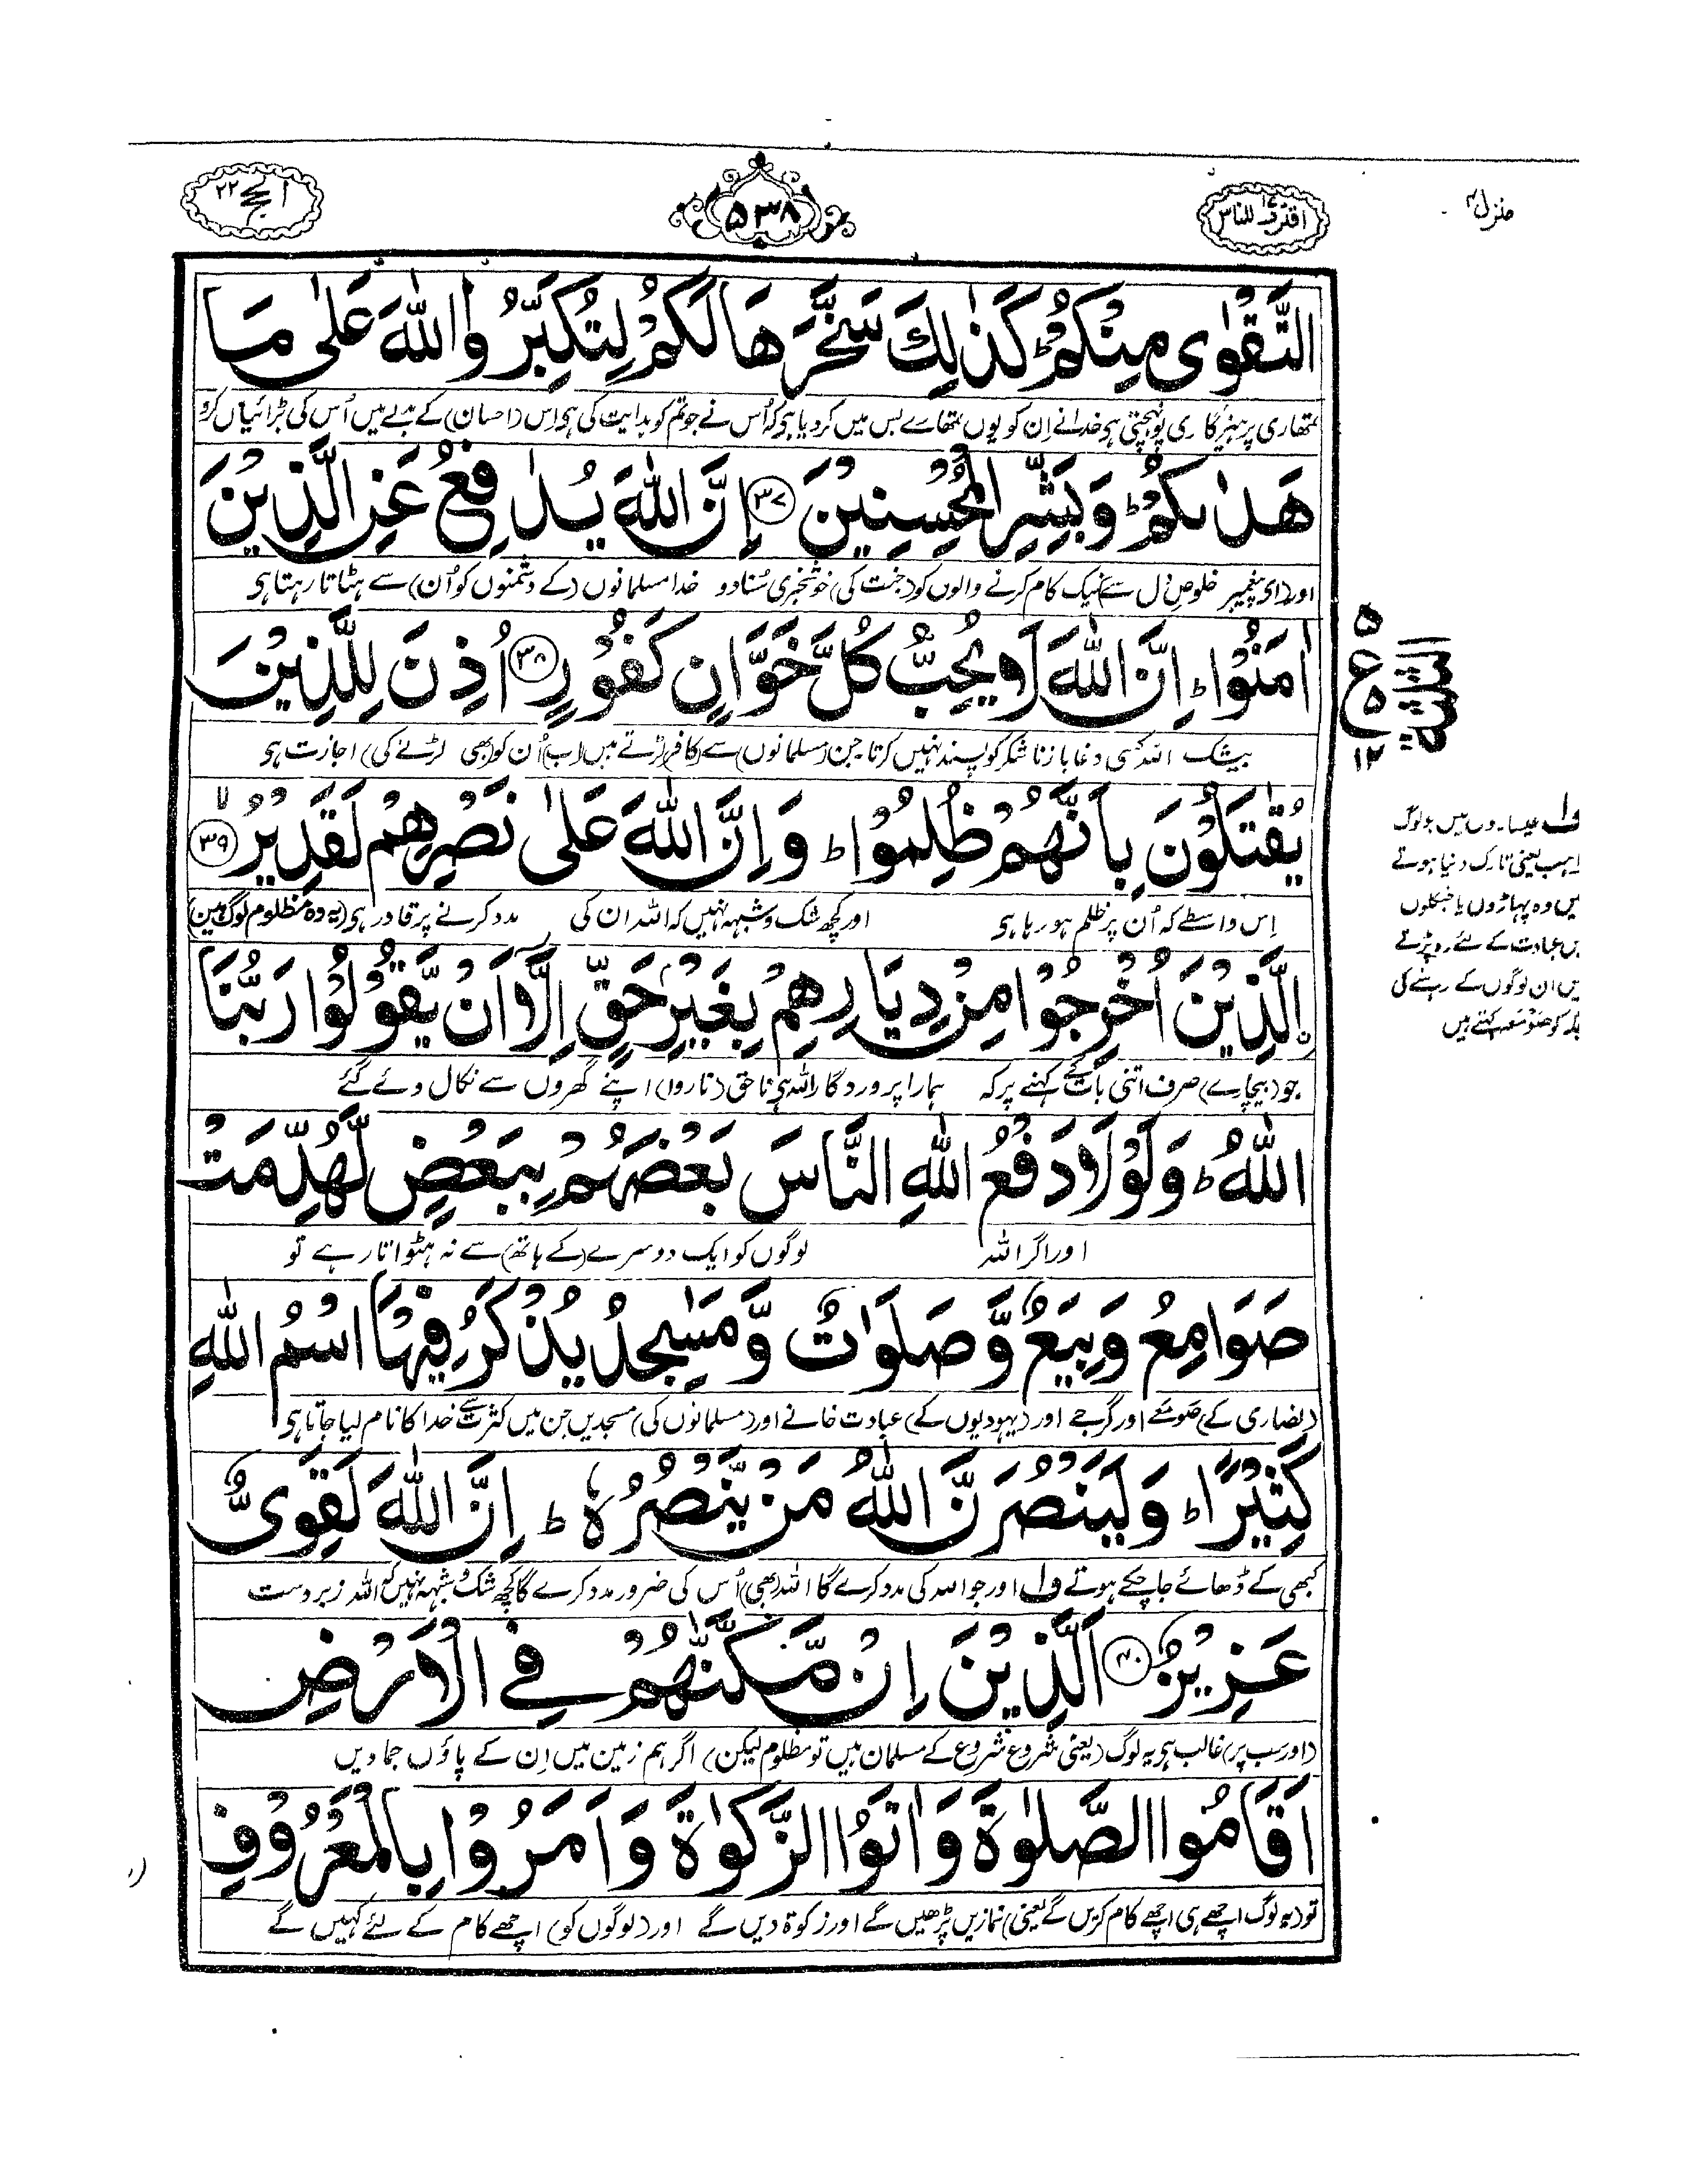 منزل ۴
اقترب للناس ۱۷
۵۳۸
الحج ۲۲
التَّقْوٰى مِنْكُمْ ؕ كَذٰلِكَ سَخَّرَهَا لَكُمْ لِتُكَبِّرُوا اللّٰهَ عَلٰى مَا
تمھاری پرہیزگاری پہنچتی ہی خدا نے اِن کو یوں تمھارے بس میں کر دیا ہی کہ اُس نے جو تم کو ہدایت کی ہی اِس (احسان) کے بدلے میں اُس کی بڑائیاں کرو
هَدٰىكُمْ ؕ وَ بَشِّرِ الْمُحْسِنِيْنَ ۳۷ اِنَّ اللّٰهَ يُدٰفِعُ عَنِ الَّذِيْنَ
اور (ای پیغمبر خلوصِ دل سے) نیک کام کرنے والوں کو (جنت کی) خوشخبری سُنا دو خدا مسلمانوں (کے دشمنوں کو اُن) سے ہٹاتا رہتا ہی
اٰمَنُوْا ؕ اِنَّ اللّٰهَ لَا يُحِبُّ كُلَّ خَوَّانٍ كَفُوْرٍ ۳۸ اُذِنَ لِلَّذِيْنَ
بیشک اللہ کسی دغاباز ناشکر کو پسند نہیں کرتا جن (مسلمانوں) سے (کافر) لڑتے ہیں (اب) اُن کو (بھی لڑنے کی) اجازت ہی
يُقٰتَلُوْنَ بِاَنَّهُمْ ظُلِمُوْا ؕ وَ اِنَّ اللّٰهَ عَلٰى نَصْرِهِمْ لَقَدِيْرُ ۳۹
اِس واسطے کہ اُن پر ظلم ہو رہا ہی اور کچھ شک و شبہہ نہیں کہ اللہ ان کی مدد کرنے پر قادر ہی (یہ وہ مظلوم لوگ ہیں)
ا۟لَّذِيْنَ اُخْرِجُوْا مِنْ دِيَارِهِمْ بِغَيْرِ حَقٍّ اِلَّاۤ اَنْ يَّقُوْلُوْا رَبُّنَا
جو (بیچارے) صرف اتنی بات کے کہنے پر کہ ہمارا پروردگار اللہ ہی ناحق (ناروا) اپنے گھروں سے نکال دئے گئے
اللّٰهُ ؕ وَ لَوْ لَا دَفْعُ اللّٰهِ النَّاسَ بَعْضَهُمْ بِبَعْضٍ لَّهُدِّمَتْ
اور اگر اللہ لوگوں کو ایک دوسرے (کے ہاتھ) سے نہ ہٹواتا رہے تو
صَوَامِعُ وَ بِيَعٌ وَّ صَلَوٰتٌ وَّ مَسٰجِدُ يُذْكَرُ فِيْهَا اسْمُ اللّٰهِ
(نصاریٰ کے) صومعے اور گرجے اور (یہودیوں کے) عبادت خانے اور (مسلمانوں کی) مسجدیں جن میں کثرت سے خدا کا نام لیا جاتا ہی
كَثِيْرًا ؕ وَ لَيَنْصُرَنَّ اللّٰهُ مَنْ يَّنْصُرُهٗ ؕ اِنَّ اللّٰهَ لَقَوِىٌّ
کبھی کے ڈھائے جا چکے ہوتے ول اور جو اللہ کی مدد کرے گا اللہ (بھی) اُس کی ضرور مدد کرے گا کچھ شک و شبہہ نہیں کہ اللہ زبردست
عَزِيْزٌ ۴۰ اَلَّذِيْنَ اِنْ مَّكَّنّٰهُمْ فِى الْاَرْضِ
(اور سب پر) غالب ہی یہ لوگ (یعنی شروع شروع کے مسلمان ہیں تو مظلوم لیکن) اگر ہم زمین میں اِن کے پاؤں جما دیں
اَقَامُوا الصَّلٰوةَ وَ اٰتَوُا الزَّكٰوةَ وَ اَمَرُوْا بِالْمَعْرُوْفِ
تو (یہ لوگ اچھے ہی اچھے کام کریں گے یعنی) نمازیں پڑھیں گے اور زکوۃ دیں گے اور (لوگوں کو) اچھے کام کے لئے کہیں گے
۵
ع
۵
۱۲
ول عیسائیوں میں جو لوگ
راہب یعنی تارک دنیا ہوتے
ہیں وہ پہاڑوں یا جنگلوں
میں عبادت کے لئے رہ پڑتے
ہیں ان لوگوں کے رہنے کی
جگہ کو صومعہ کہتے ہیں